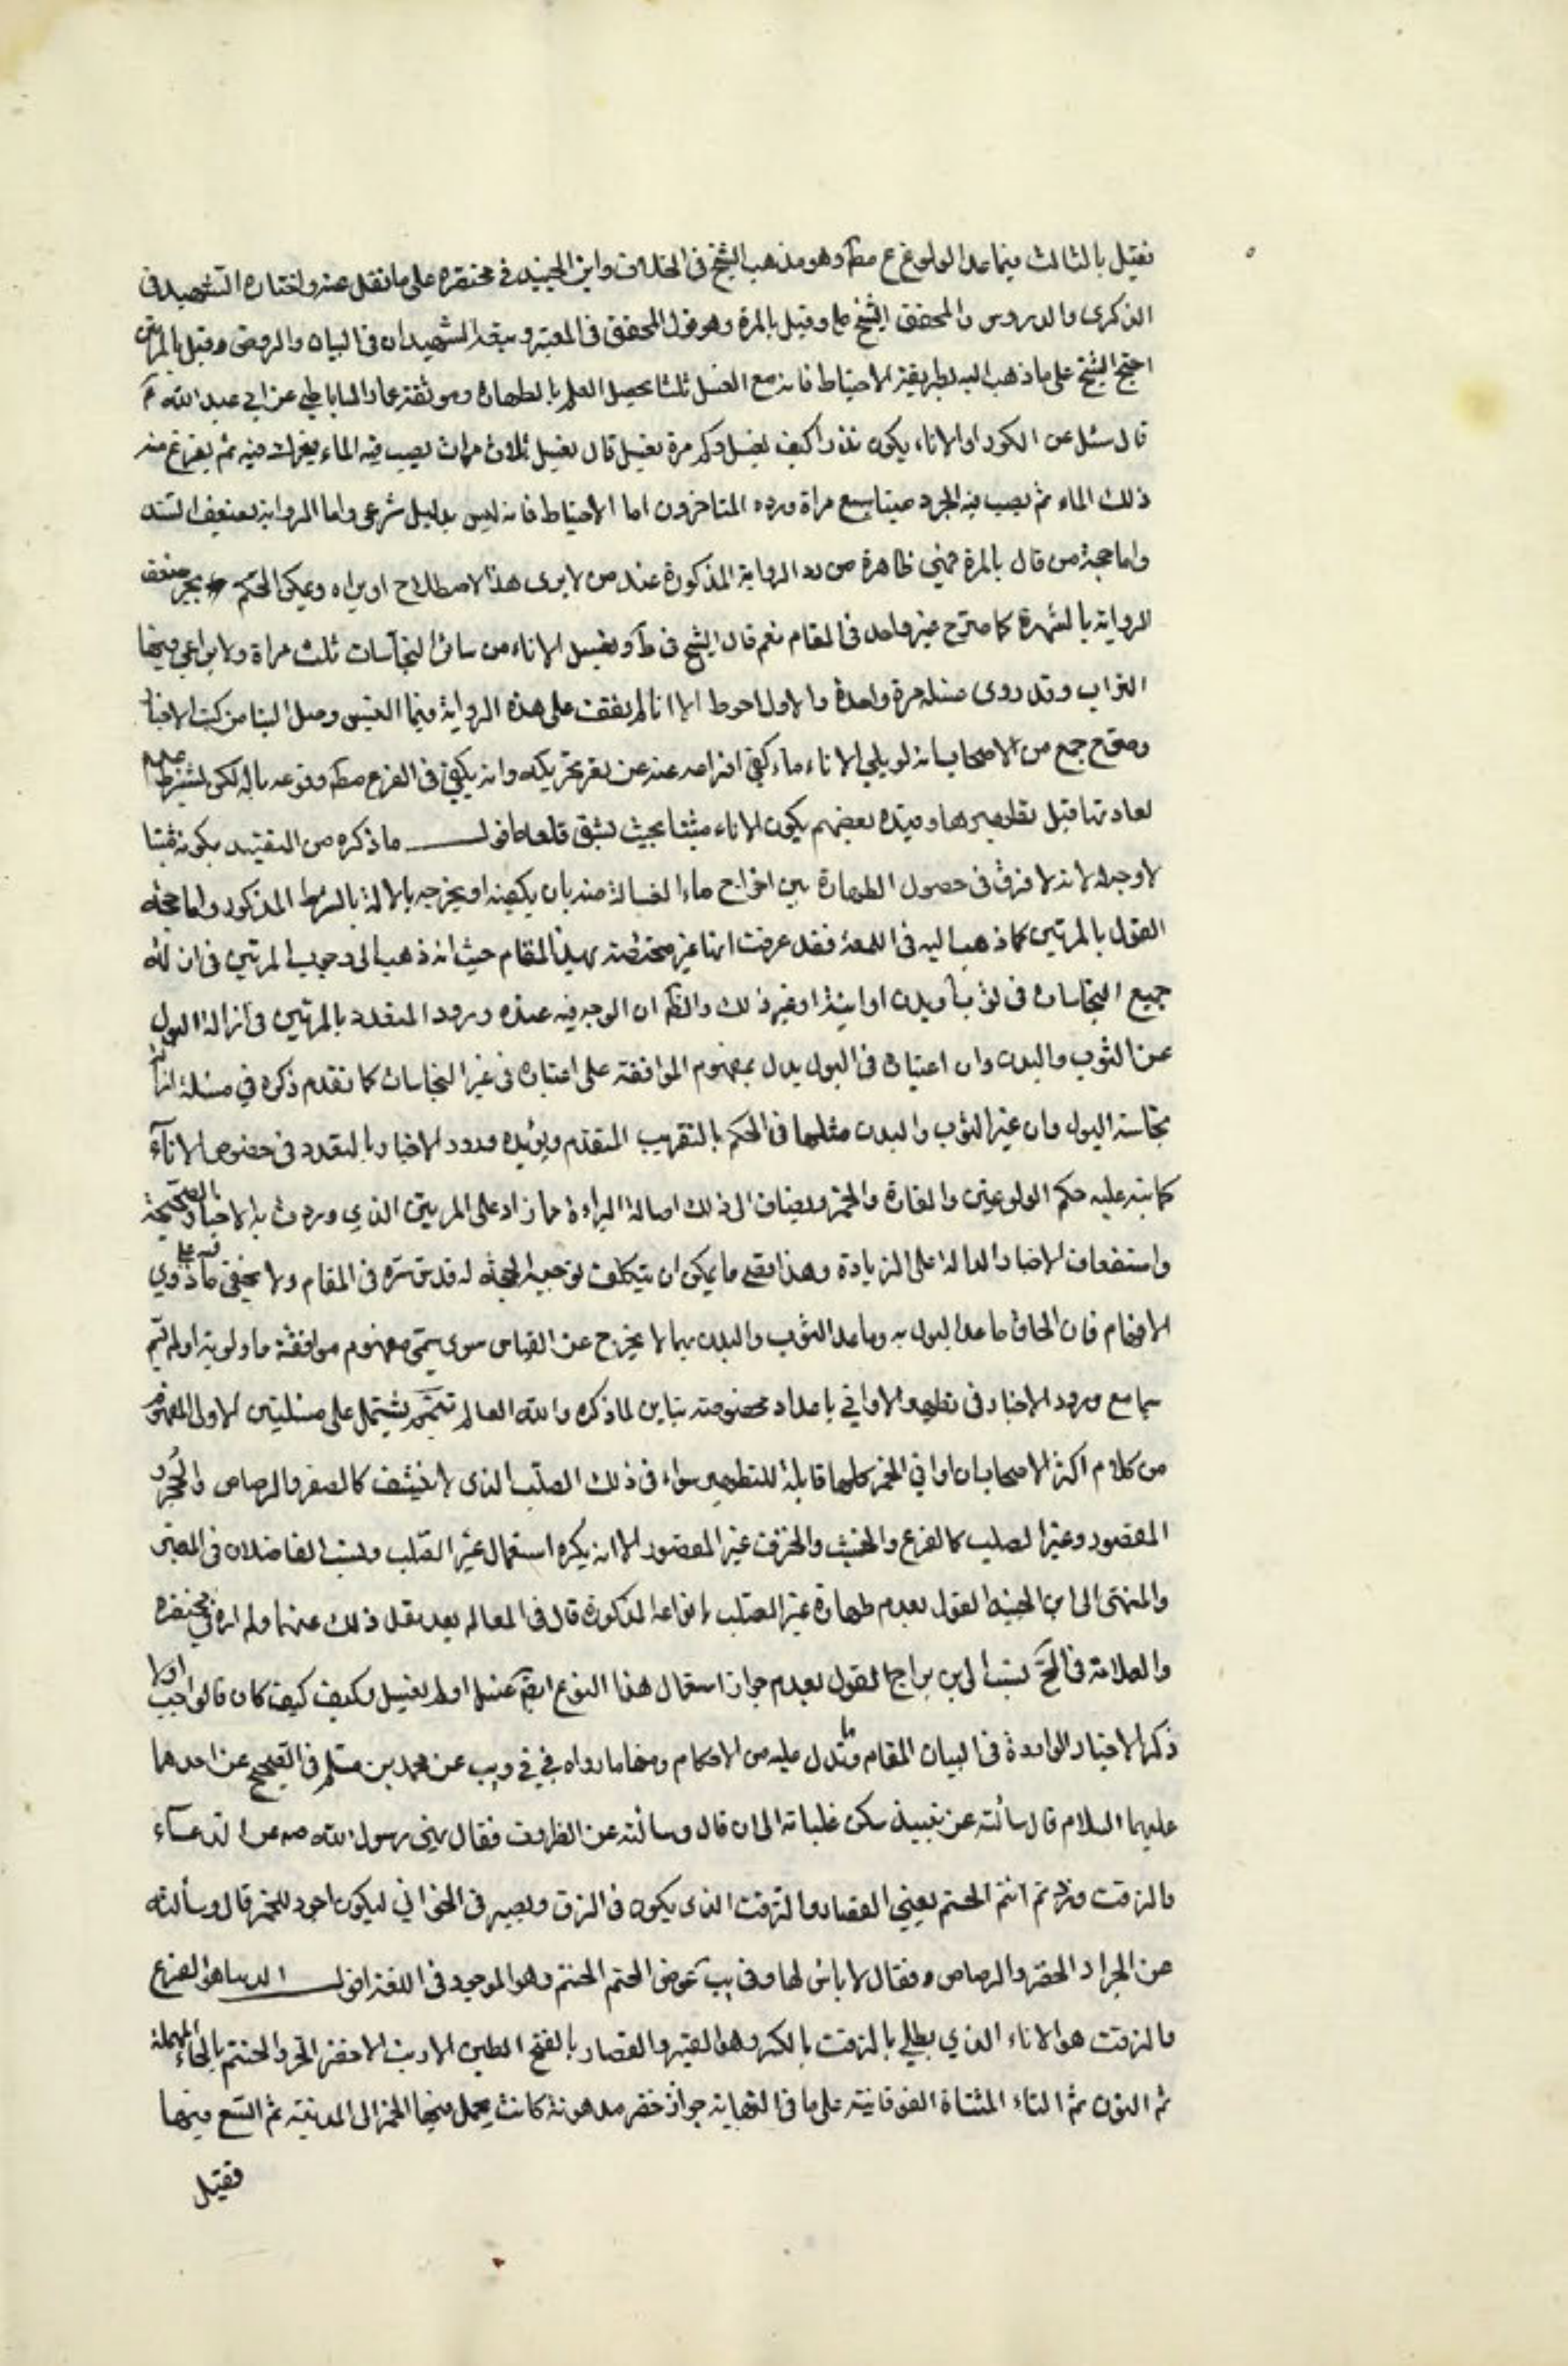 فقيل بالثالث فيما عدا الولوغ ع مطَ وهو مذهب الشيخ في الخلاف وابن الجنيد في مختصره على ما نقل عنه واختاره الشهيد في
الذكرى والدروس والمحقق الشيخ علي وقيل بالمرة وهو قول المحقق في المعتبر وتبعه الشهيدان في البيان والروض وقيل بالمرتين
احتج الشيخ على ما ذهب اليه بطريقة الاحتياط فانه مع الغسل ثلثا يحصل العلم بالطهارة وموثقة عمار الساباطي عن ابي عبد الله ع
قال سئل عن الكوز او الاناء يكون قذرا كيف يغسل وكم مرة يغسل قال يغسل ثلاث مرات يصب فيه الماء يحرك فيه ثم يفرغ منه
ذلك الماء ثم يصب فيه الجرذ ميتا سبع مراة ورده المتاخرون اما الاحتياط فانه ليس بدليل شرعي واما الرواية بضعف السند
واما حجة من قال بالمرة فهي ظاهرة من رد الرواية المذكورة عند من لا يرى هذا الاصطلاح او يراه ويمكن الحكم بجبر ضعف
الرواية بالشهرة كما صرح غير واحد في المقام نعم قال الشيخ في ط ويغسل الاناء من سائر النجاسات ثلث مراة ولا يراعي فيها
التراب وقد روى غسله مرة واحدة والاول احوط الا انا لم نقف على هذه الرواية فيما وصل الينا من كتب الاخبار
وصرح جمع من الاصحاب انه لو ملي الاناء ماء كفى افراغه عنه عن تحريكه وانه يكفي في التفريغ مطَ وقوعه بالة لكن بشرط عدم
اعادتها قبل تطهيرها وقيده بعضهم بكون الاناء مثبتا بحيث يشق قلعه اقول ما ذكره من التقييد بكونه مثبتا
لا وجه له لانه لا فرق في حصول الطهارة بين اخراج ماء الغسالة منه بان يكفيه او يخرجه بالالة بالشرط المذكور واما حجة
القول بالمرتين كما ذهب اليه في اللمعة فقد عرفت انها غير مختصة بهذا المقام حيث انه ذهب الى وجوب المرتين في ازالة
جميع النجاسات في ثوب او بدن او انية او غير ذلك والظَ ان الوجه فيه عنده ورود التعدد بالمرتين في ازالة البول
عن الثوب والبدن وان اعتباره في البول يدل بمفهوم الموافقة على اعتباره في غير النجاسات كما تقدم ذكره في مسئلة ازالة
نجاسة البول وان غير الثوب والبدن مثلهما في الحكم بالتقريب المتقدم ويؤيده ورود الاخبار بالتعدد في خصوص الاناء
كما نبه عليه حكم الولوغين والفارة والخمر ويضاف الى ذلك اصالة البراءة مما زاد على المرتين الذي وردت به الاخبار الصحيحة
واستضعاف الاخبار الدالة على الزيادة وهذا اقصى ما يمكن ان يتكلف توجيه الحجة له قدس سره في المقام ولا يخفى ما فيه على ذوي
الافهام فان الحاق ما عدا البول به وما عدا الثوب والبدن بهما لا يخرج عن القياس سوى سمي مفهوم موافقة ما ولوية او لم يتم
سيما مع ورود الاخبار في تطهير الاواني باعداد مخصوصة تباين لما ذكره والله العالم تتميم يشتمل على مسئلتين الاولى المفهوم
من كلام اكثر الاصحاب ان اواني الخمر كلها قابلة للتطهير سواء في ذلك الصلب الذي لا ينشف كالصفر والرصاص والحجر و
المغضور وغير الصلب كالقرع والخشب والخزف غير المغضور الا انه يكره استعمال غير الصلب ونسب الفاضلان في المعتبر
والمنتهى الى ابن الجنيد القول بعدم طهارة غير الصلب بانواعه المذكورة قال في المعالم بعد نقل ذلك عنهما ولم اره في مختصره
والعلامة في المخَ نسب الى ابن براج القول بعدم جواز استعمال هذا النوع ايضَ غسل او لم يغسل وكيف كيف كان فالواجب اولا
ذكر الاخبار الواردة في البيان المقام وما تدل عليه من الاحكام ومنها ما رواه في في ويب عن محمد بن مسلم في الصحيح عن احدهما
عليهما السلام قال سألته عن نبيذ سكن غليانه الى ان قال وسألته عن الظروف فقال نهى رسول الله صه عن الدباء
والمزفت وزدتم انتم الحنتم يعني الغضار والمزفت الذي يكون في الزق ويصير في الخوابي ليكون اجود للخمر قال وسألته
عن الجرار الخضر والرصاص فقال لا باس لها وفي يب عوض الحتم الحنتم وهو الموجود في اللغة اقول الدباء هو القرع
والمزفت هو الاناء الذي يطلى بالزفت بالكسر وهو القير والغضار بالفتح الطين الازب الاخضر الحر والحنتم بالحاء المهملة
ثم النون ثم التاء المثناة الفوقانية على ما في النهاية جرار خضر مدهونة كانت يحمل فيها الخمر الى المدينة ثم اتسع فيها
فقيل